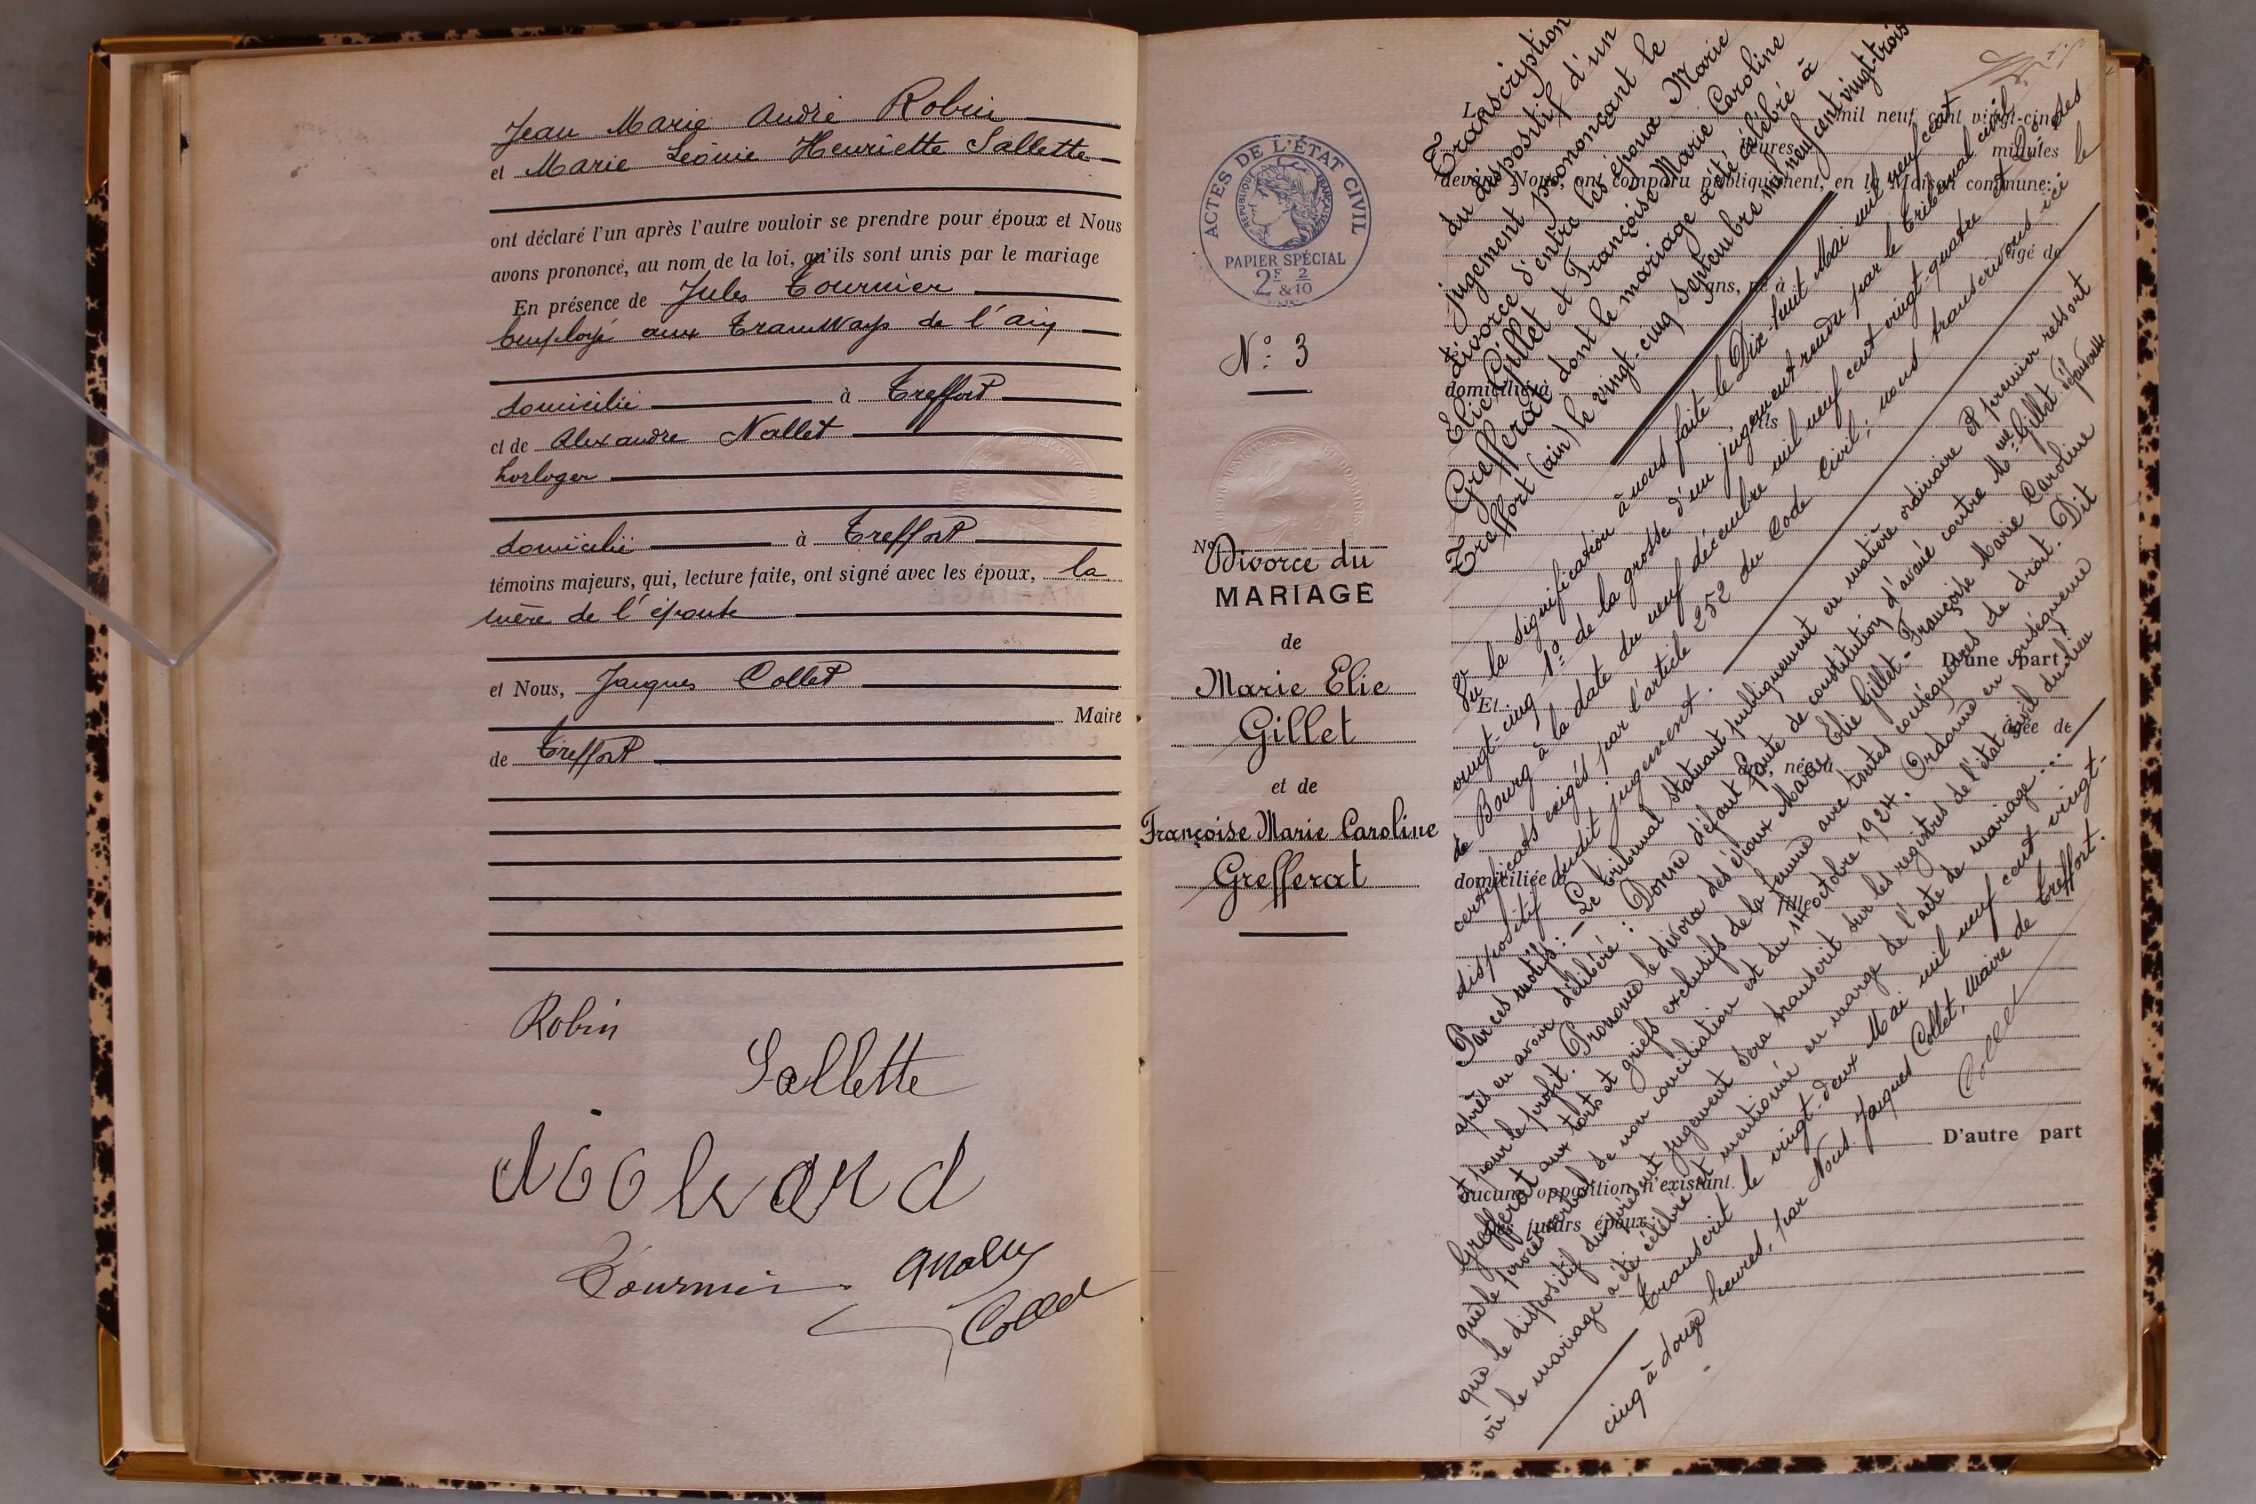 Jean Marie André Robin
et Marie Léonie Henriette Sallette
ont déclaré l'un après l'autre vouloir se prendre pour époux et Nous
avons prononcé, au nom de la loi, qu'ils sont unis par le mariage
En présence de Jules Tournier
employé aux Tramways de l'ain
domicilié à Treffort
et de Alexandre Nallet
horloger
domicilié à Treffort
témoins majeurs, qui, lecture faite, ont signé avec les époux, la
mère de l'épouse
et Nous, Jacques Collet
Maire
de Treffort
Robin
Sallette
Tournier
Collet
ACTES DE L'ÉTAT CIVIL
RÉPUBLIQUE FRANÇAISE
PAPIER SPÉCIAL
2F 2
&10
N° 3
No
Divorce du
MARIAGE
de
Marie Elie
Gillet
et de
Françoise Marie Caroline
Grefferat
L
mil neuf cent vingt-cinq
heures minutes
devant Nous, ont comparu publiquement, en la Maison commune:
âgé de
ans, né à
domicilié à
fils
D'une part
Et
âgée de
ans, née à
domiciliée à
fille
D'autre part
aucune opposition n'existant.
Les futurs époux
Transcription
du dispositif d'un
jugement prononçant le
divorce d'entre les époux Marie
Elie Gillet et Françoise Marie Caroline
Grefferat dont le mariage a été célébré à
Treffort (ain) le vingt-cinq septembre mil neuf cent vingt-trois
Vu la signification à nous faite le Dix-huit Mai mil neuf cent
vingt-cinq 1° de la grosse d'un jugement rendu par le Tribunal civil
de Bourg à la date du neuf décembre mil neuf cent vingt-quatre et 2° des
certificats exigés par l'article 252 du Code Civil; nous transcrivons ici le
dispositif dudit jugement.
Par ces motifs:- Le Tribunal statuant publiquement en matière ordinaire & premier ressort
après en avoir délibéré: Donne défaut faute de constitution d'avoué contre Mme Gillet défenderesse
et pour le profit. Prononce le divorce des époux Marie Elie Gillet - Françoise Marie Caroline
Grefferat aux torts et griefs exclusifs de la femme avec toutes conséquences de droit. Dit
que le procès verbal de non conciliation est du 14 octobre 1924. Ordonne en conséquence
que le dispositif du présent jugement sera transcrit sur les registres de l'état civil du lieu
où le mariage a été célébré et mentionné en marge de l'acte de mariage...
Transcrit le vingt-deux Mai mil neuf cent vingt-
cinq à douze heures, par Nous Jacques Collet, Maire de Treffort.
Collet